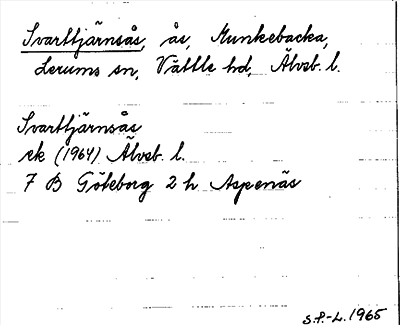 Svarttjärnsås, ås, Munkebacka,
Lerums sn, Vättle hd, Älvsb. l.
Svarttjärnsås
ek (1964) Älvsb. l.
7 B Göteborg 2 h Aspenäs
S.F.-L. 1965